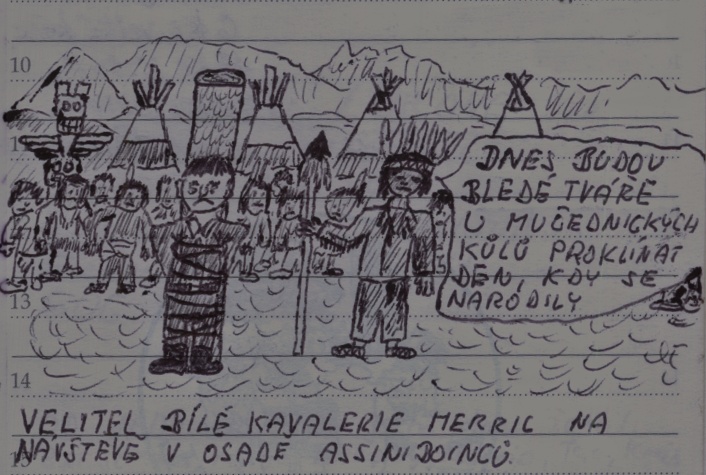 10
DNES BUDOU
BLEDÉ TVÁŘE
U MUČEDNICKÝCH
KŮLŮ PROKLÍNAT
DEN, KDY SE
NARODILY
13
14
VELITEL BÍLÉ KAVALERIE MERRIC NA
NÁVŠTĚVĚ V OSADĚ ASSINIBOINCŮ.